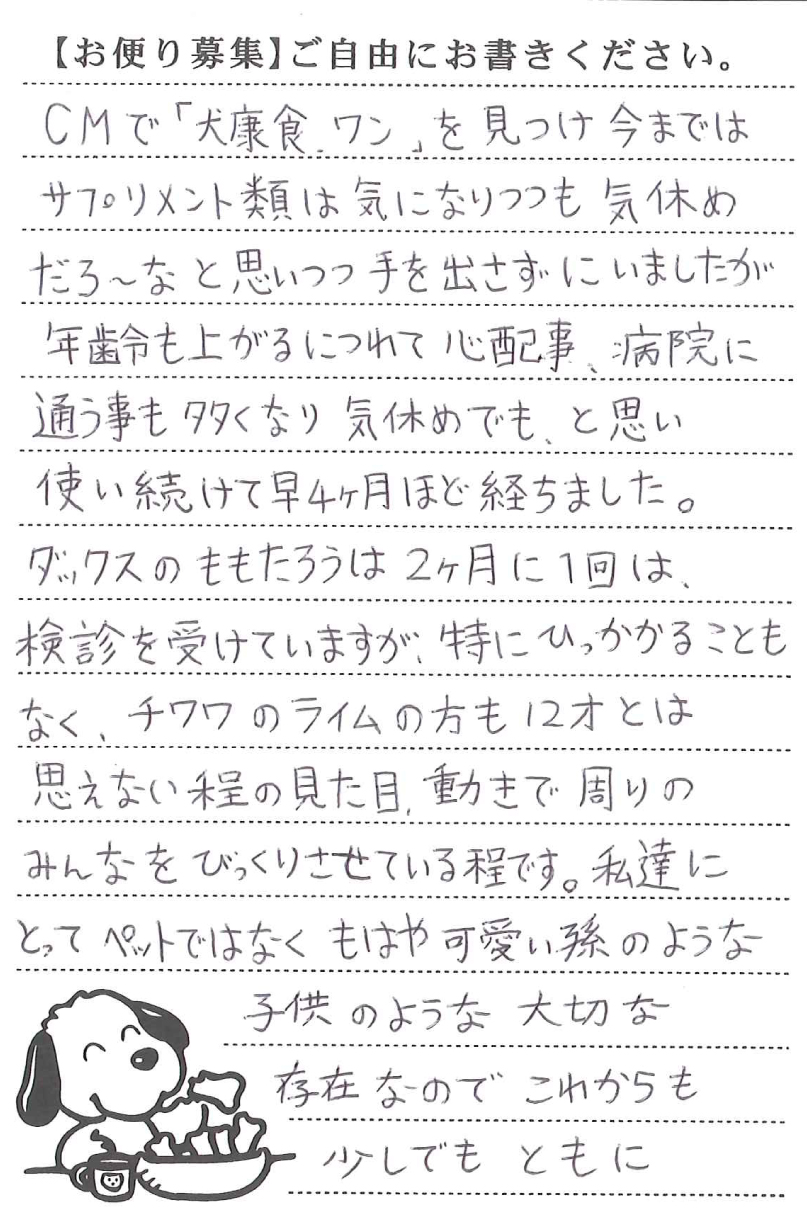 【お便り募集】ご自由にお書きください。
CMで「犬康食.ワン」を見つけ今までは
サプリメント類は気になりつつも気休め
だろ〜なと思いつつ手を出さずにいましたが
年齢も上がるにつれて心配事、病院に
通う事も多くなり気休めでも、と思い
使い続けて早4ヶ月ほど経ちました。
ダックスのももたろうは2ヶ月に1回は、
検診を受けていますが、特にひっかかることも
なく、チワワのライムの方も12才とは
思えない程の見た目、動きで周りの
みんなをびっくりさせている程です。私達に
とってペットではなくもはや可愛い孫のような
子供のような大切な
存在なのでこれからも
少しでもともに